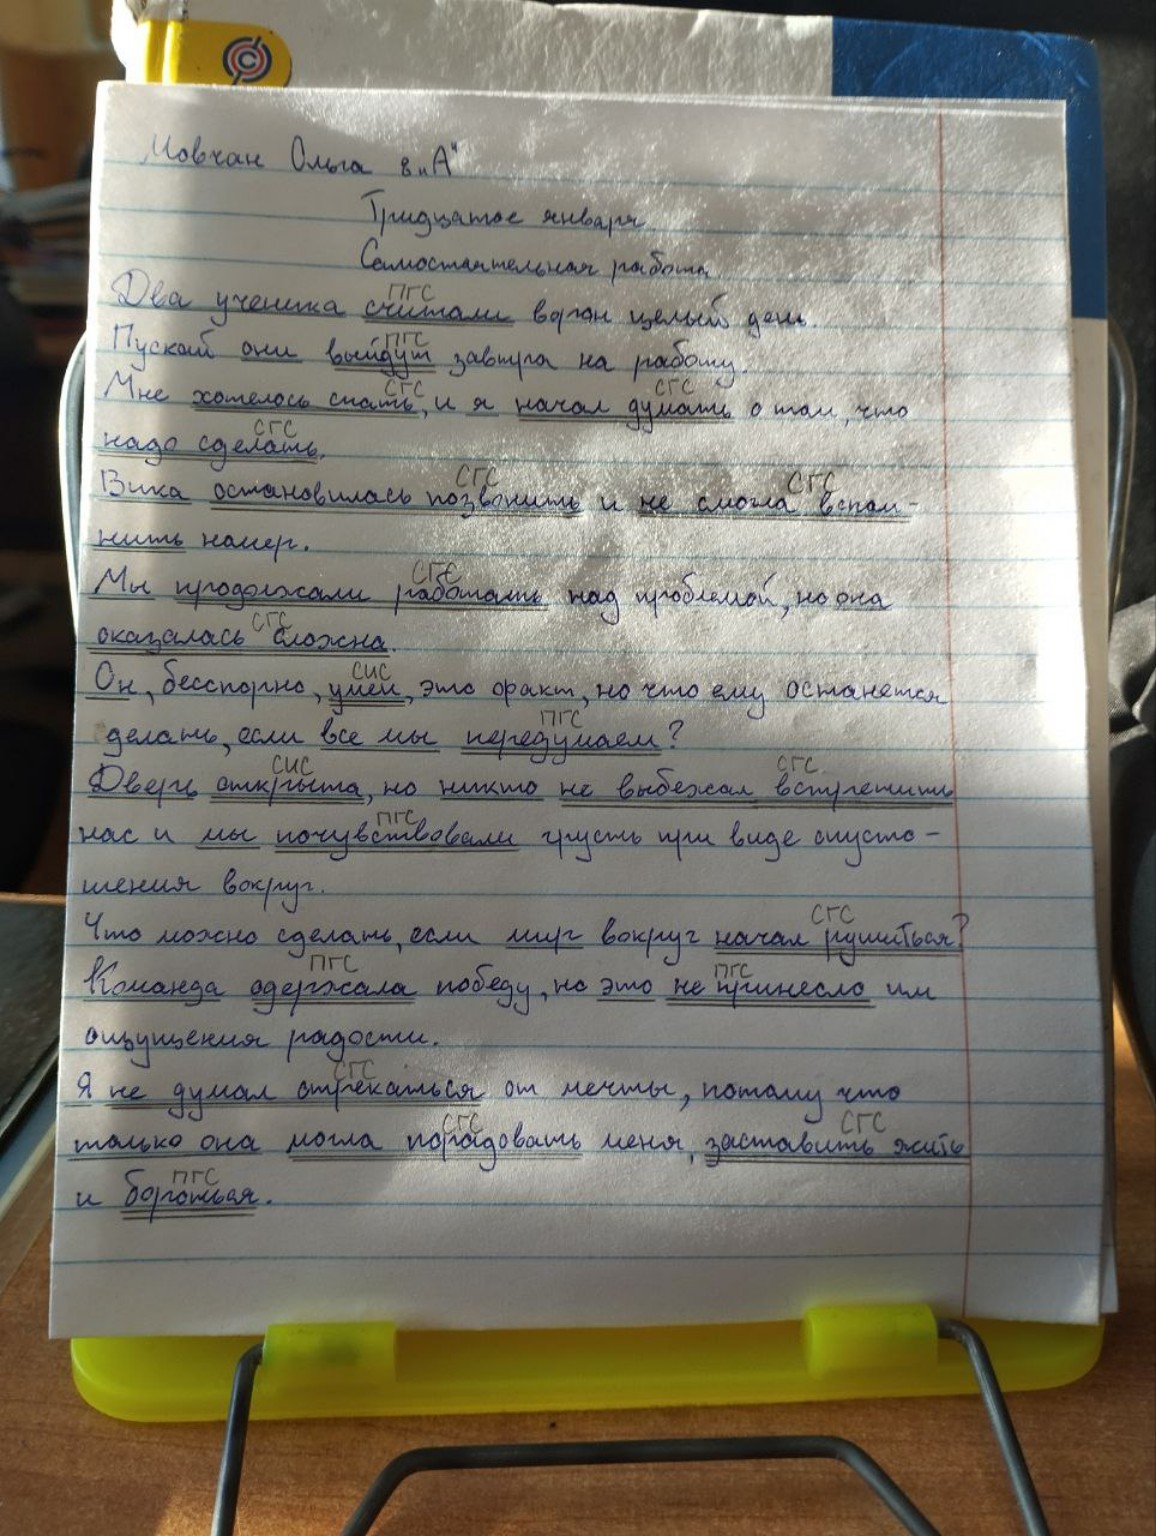 Мовчан Ольга 8 „А"
Тридцатое января
Самостоятельная работа
ПГС
Два ученика считали ворон целый день.
ПГС
Пускай они выйдут завтра на работу.
СГС СГС
Мне хотелось спать, и я начал думать о том, что
СГС
надо сделать.
СГС СГС
Вика остановилась позвонить и не смогла вспом-
нить номер.
СГС
Мы продолжали работать над проблемой, но она
СГС
оказалась сложна.
СИС
Он, бесспорно, умен, это факт, но что ему останется
ПГС
делать, если все мы передумаем?
СИС СГС
Дверь открыта, но никто не выбежал встретить
ПГС
нас и мы почувствовали грусть при виде опусто-
шения вокруг.
СГС
Что можно сделать, если мир вокруг начал рушиться?
ПГС ПГС
Команда одержала победу, но это не принесло им
ощущения радости.
СГС
Я не думал отрекаться от мечты, потому что
СГС СГС
только она могла порадовать меня, заставить жить
ПГС
и бороться.